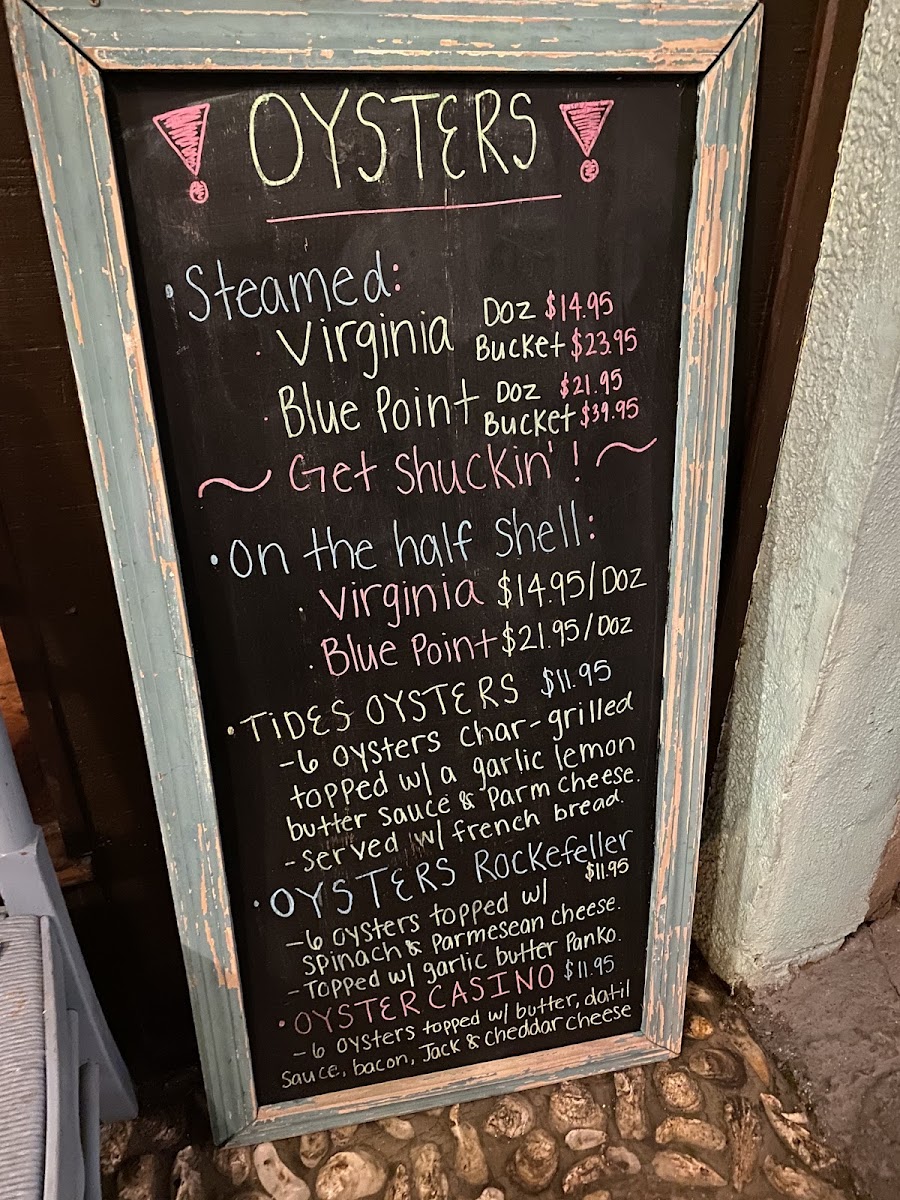 OYSTERS
• Steamed:
• Virginia Doz $14.95
Bucket $23.95
• Blue Point Doz $21.95
Bucket $39.95
~ Get Shuckin'! ~
• On the half Shell:
• Virginia $14.95/Doz
• Blue Point $21.95/Doz
• TIDES OYSTERS $11.95
- 6 oysters char-grilled
topped w/ a garlic lemon
butter sauce & Parm cheese.
- Served w/ french bread.
• OYSTERS Rockefeller
$11.95
- 6 oysters topped w/
spinach & Parmesean cheese.
- Topped w/ garlic butter Panko.
• OYSTER CASINO $11.95
- 6 oysters topped w/ butter, datil
sauce, bacon, Jack & cheddar cheese